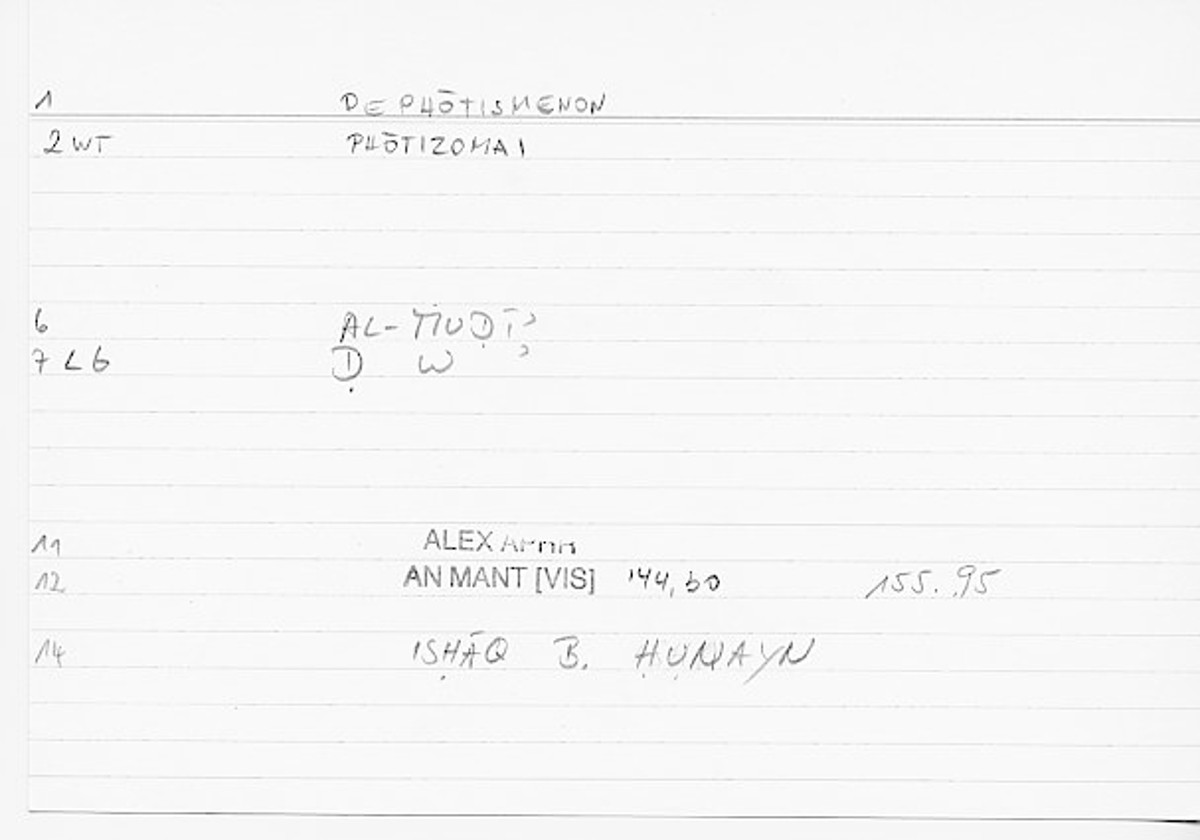 1 DE PHŌTISMENON
2 WT PHŌTIZOMAI
6 AL-MUḌĪʾ
7 L 6 Ḍ W ʾ
11 ALEX APHR
12 AN MANT [VIS] 144, 30 155. 95
14 ISḤĀQ B. ḤUNAYN